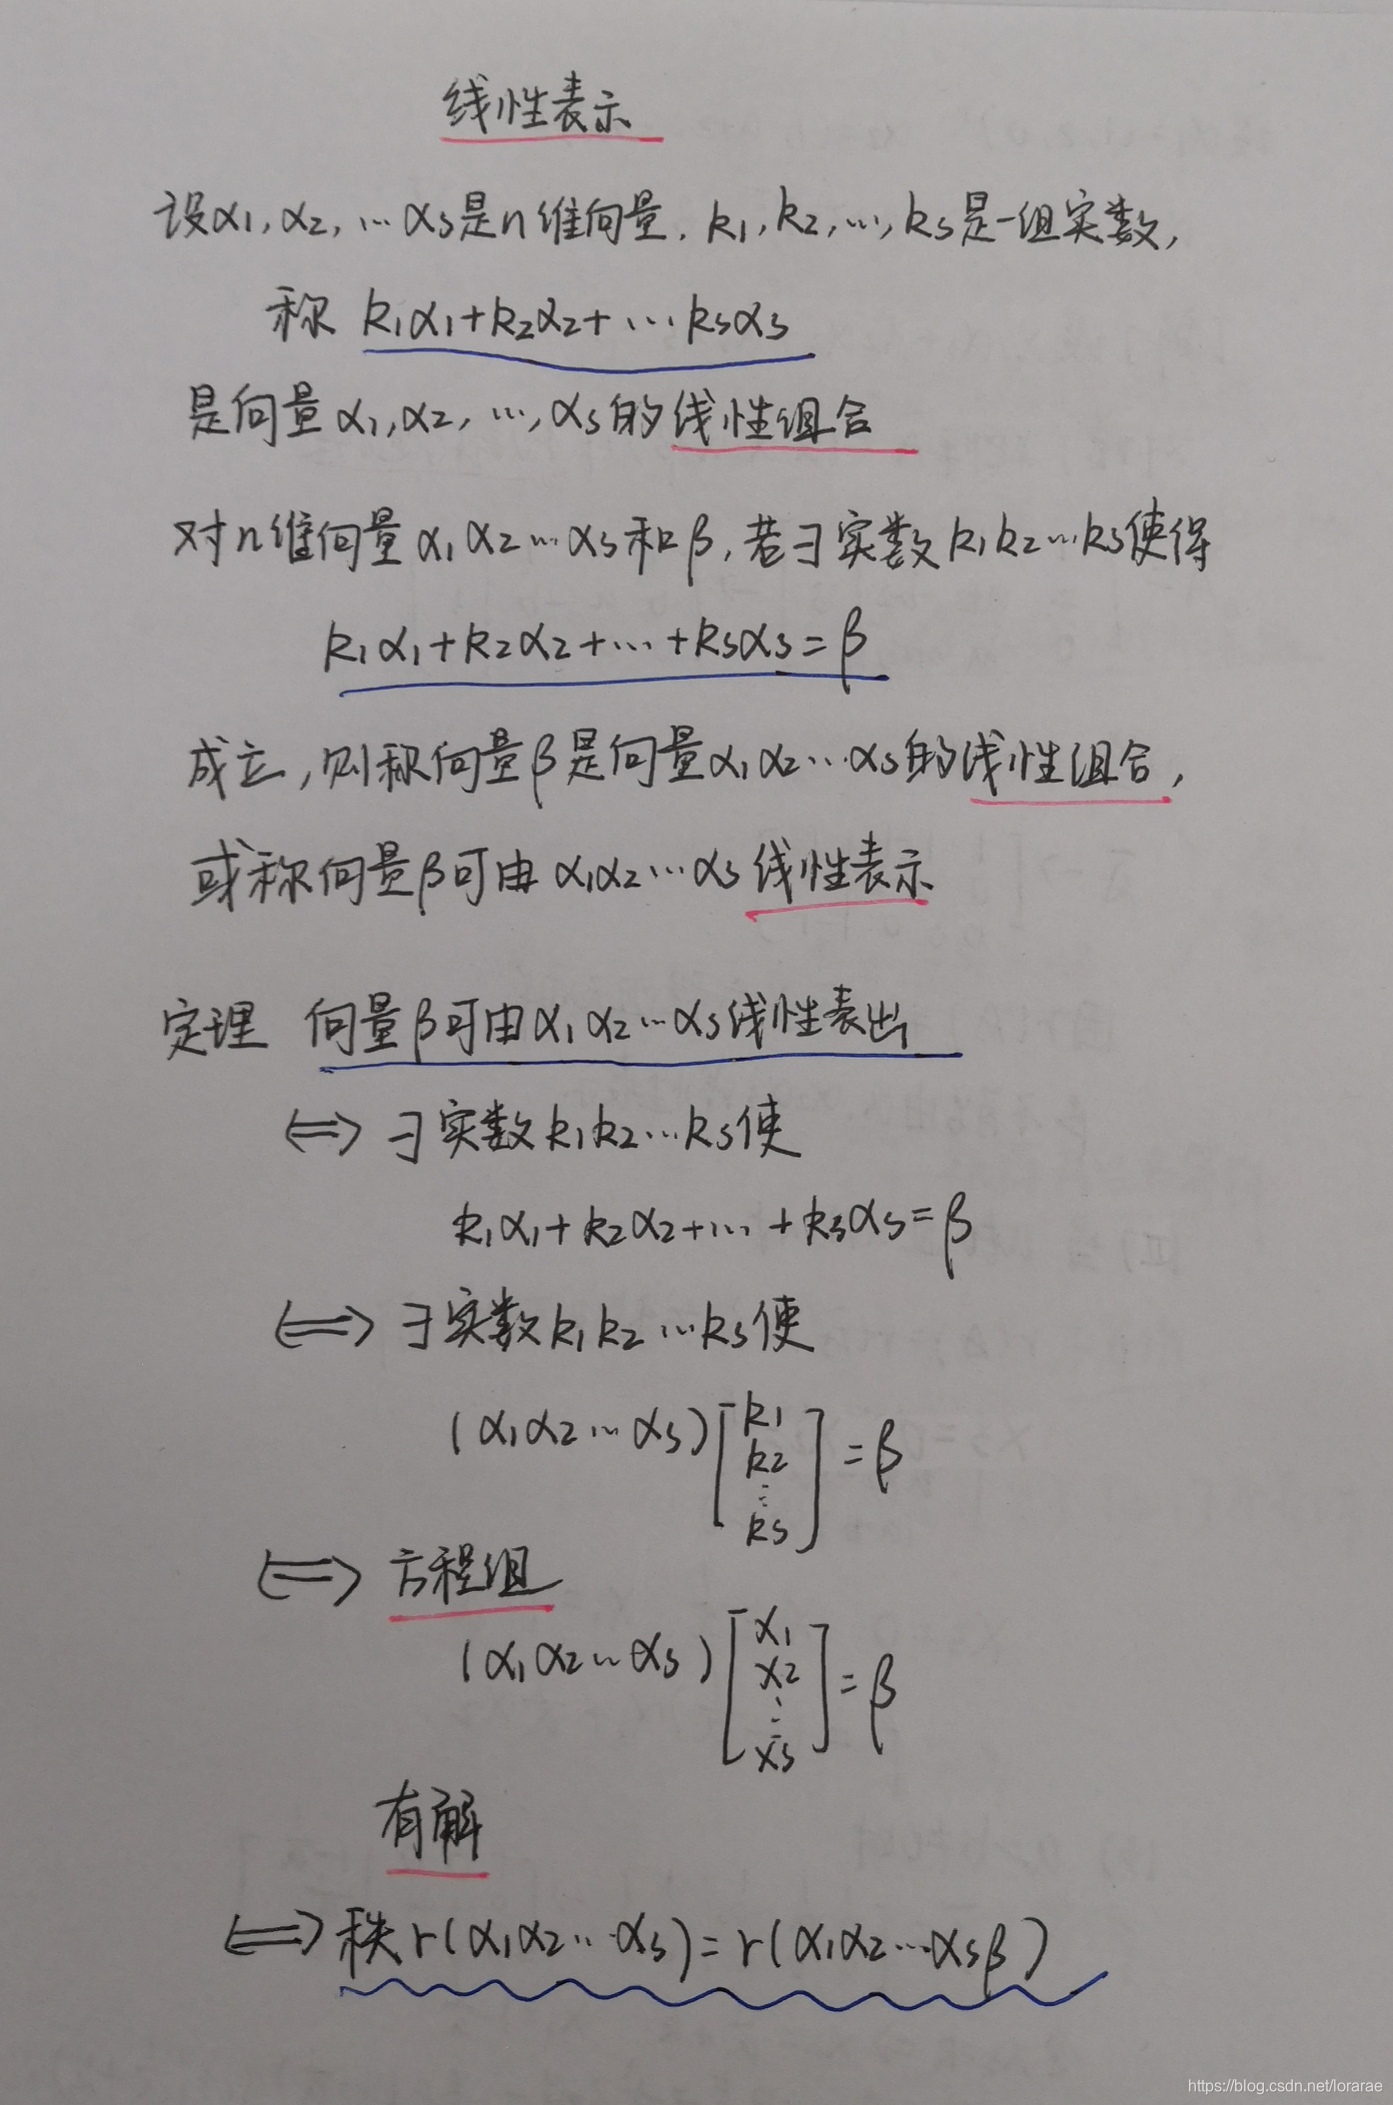 线性表示
设α1,α2,…αs是n维向量,k1,k2,…,ks是一组实数,
称 k1α1+k2α2+…ksαs
是向量α1,α2,…,αs的线性组合
对n维向量α1α2…αs和β,若∃实数k1k2…ks使得
k1α1+k2α2+…+ksαs=β
成立,则称向量β是向量α1α2…αs的线性组合,
或称向量β可由α1α2…αs线性表示
定理 向量β可由α1α2…αs线性表出
⟺ ∃实数k1k2…ks使
k1α1+k2α2+…+ksαs=β
⟺ ∃实数k1k2…ks使
(α1α2…αs)[k1 k2 ⋮ ks]=β
⟺ 方程组
(α1α2…αs)[x1 x2 ⋮ xs]=β
有解
⟺ 秩r(α1α2…αs)=r(α1α2…αsβ)
https://blog.csdn.net/lorarae